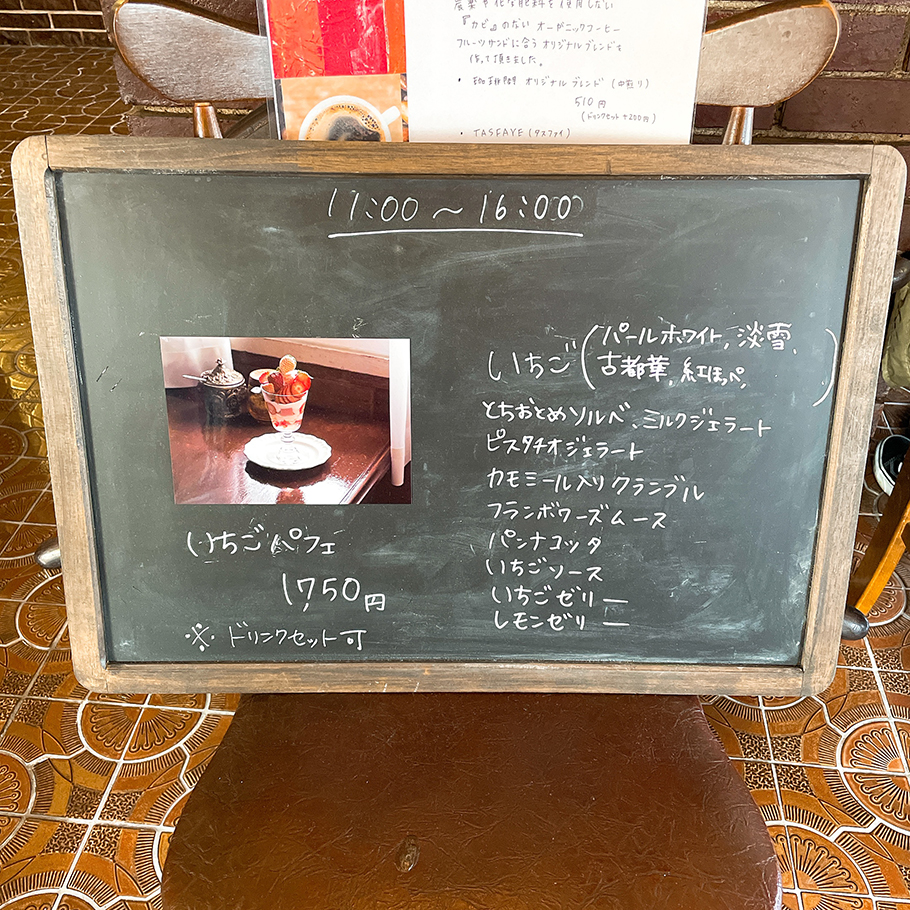 農薬や化学肥料を使用しない
『カビ』のない オーガニックコーヒー
フルーツサンドに合う オリジナルブレンドを
作って頂きました。
• 珈琲閣 オリジナルブレンド (中煎り)
510円
(ドリンクセット +200円)
• TASFAYE (タスファイ)
11:00 ~ 16:00
いちご (パールホワイト, 淡雪,
古都華, 紅ほっぺ)
とちおとめソルベ、ミルクジェラート
ピスタチオジェラート
カモミール入りクランブル
フランボワーズムース
パンナコッタ
いちごソース
いちごゼリー
レモンゼリー
いちごパフェ
1750円
※ ドリンクセット可